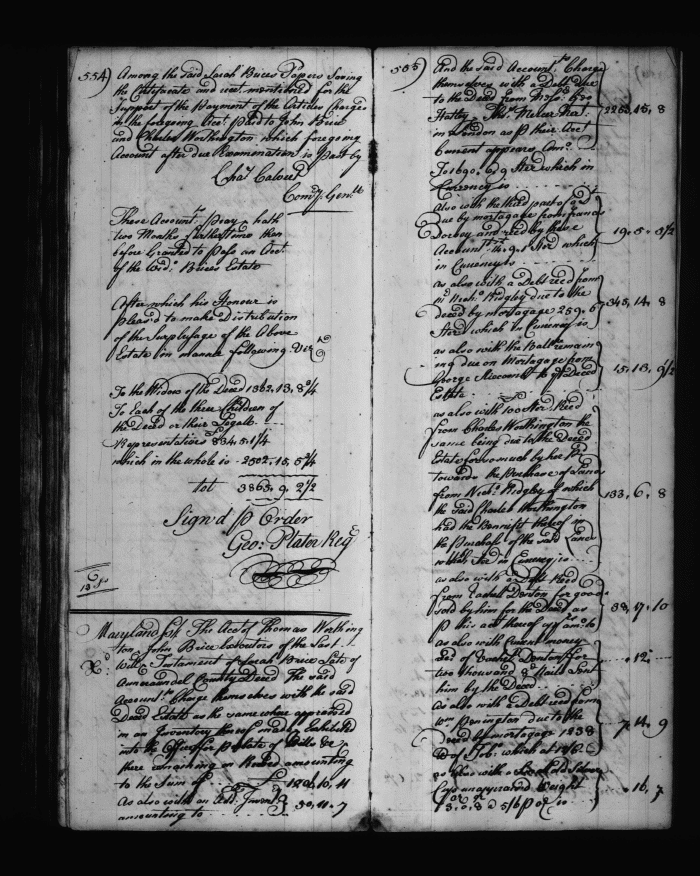 554)
Among the said Sarah Brices Papers Saving
the Certificate and rect. mentioned for the
Support of the Payment of the Articles Charged
in the foregoing Acct. Paid to John Brice
and Charles Worthington which foregoing
Account after due Examination is Past by
Chas. Calvert
Comry. Genll.
These Accountts. Pray hath
two Months further time then
before Granted to Pass an Acct.
of the Wido. Brices Estate
After which his Honour is
Pleasd to make Distribution
of the Surplusage of the Above
Estate in manner following Vizt.
To the Widow of the Deced 1362.13.8¾
To Each of the three Children of
the Deced or their Legall
Representatives 834.5.1¾
which in the whole is 2502.15.5¾
tot 3865.9.2½
Signd p Order
Geo: Plater Regr.
Maryland Sst. The Acct. of Thomas Worthing
ton John Brice Executors of the Last
Will & Testament of Sarah Brice Late of
Annarundel County Deced The said
Accountts. Charge themselves with the said
Deced Estate as the same where appraised
in an Inventory thereof made & Exhibited
into the Office for Probate of Wills &c
there remaining on Record amounting
to the Sum of £
As also with an Add. Inventy.
amounting to 50.11.7
555)
And the said Accountts. Charge
themselves with a Debt due
to the Deced from
in London as p their Acct.
Current appears Amo.
To 1690.6.9 Ster which in
Currency is 2253.15.8
Also with the third part of a Dt.
due by mortgage from Francis
Dorsey and recd by these
Accountts. 14.9.1 Ster which
in Currency is 19.5.5½
as also with a Debt recd from
mr. Nicho. Ridgley due to the
Deced by mortgage 259.6
Ster which in Currency is 345.14.8
as also with the Balla. remain
ing due on Mortgage from
George to ye Deced
Estate 15.13.9½
as also with 100 Ster Recd
from Charles Worthington the
same being due to the Deced
Estate for so much by her Pd.
towards the Purchase of Lands
from Nicho. Ridgley of which
the said Charles Worthington
had the Bennefit thereof in
the Purchase of the said Land
which Ster in Currency is 133.6.8
as also with a Debt Recd
from Denton for goods
sold by him for the Deced as
p his acct thereof 38.17.10
as also with Current money
red. of Denton for
two thousand Nails Lent
him by the Deced .12.
as also with a Debt recd from
Wm. Penington due to the
Deced by mortgage 1238
lb of Tobo. which at 7.14.9
as also with
unappraised Weight
@ 5/6 p oz is .16.7